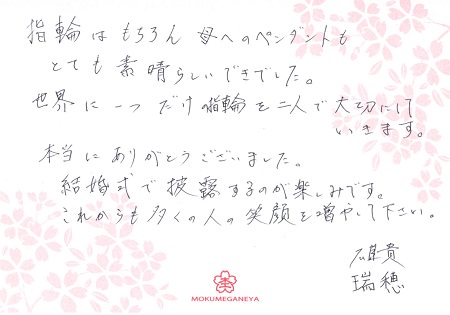 指輪はもちろん 母へのペンダントも
とても素晴らしいできでした。
世界に一つだけの指輪を二人で大切にして
いきます。
本当にありがとうございました。
結婚式で披露するのが楽しみです。
これからも多くの人の笑顔を増やして下さい。
雄貴
瑞穂
MOKUMEGANEYA